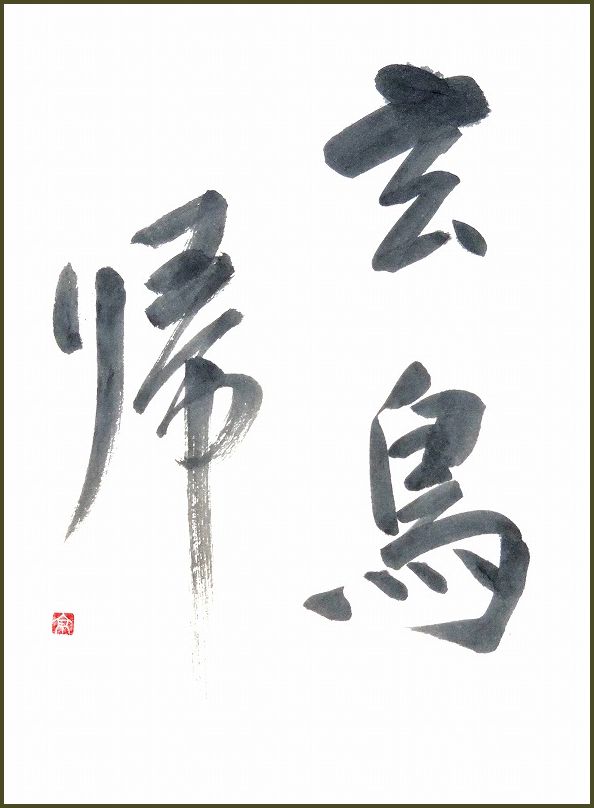 玄鳥
帰